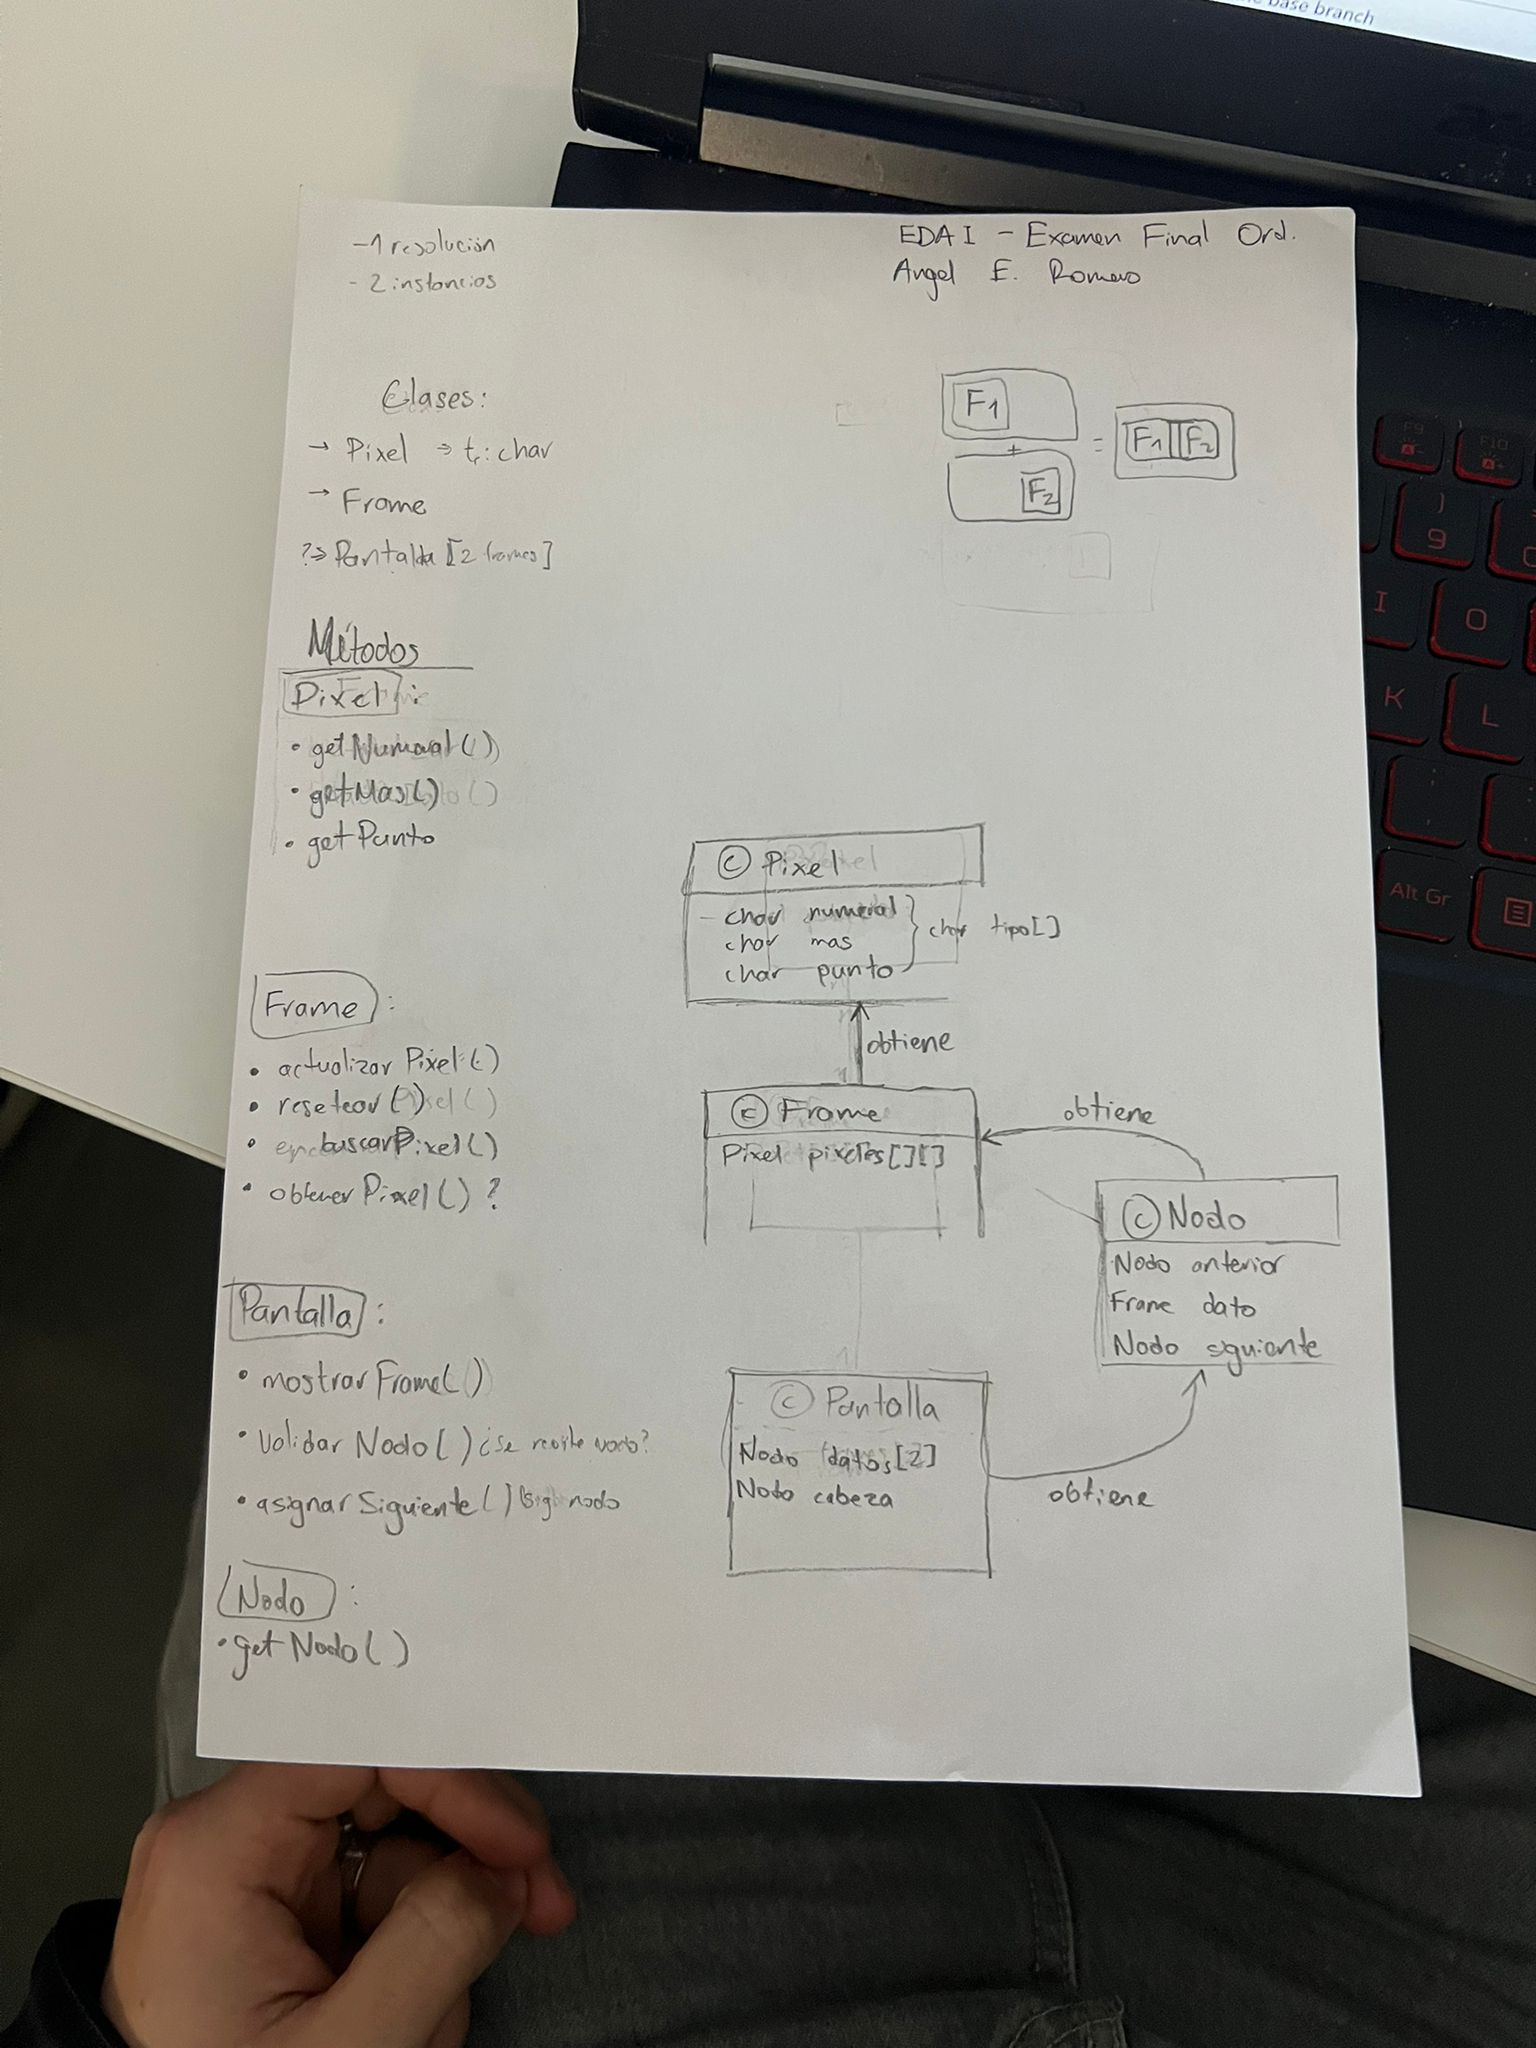 base branch
-1 resolución
- 2 instancias
EDA I - Examen Final Ord.
Angel E. Romero
Clases:
→ Pixel ⇒ t: char
→ Frame
?⇒ Pantalla [2 frames]
F1
+
F2
=
F1 F2
Métodos
Pixel:
• getNumeral()
• getMas()
• getPunto
Frame:
• actualizar Pixel()
• resetear()
• buscarPixel()
• obtener Pixel() ?
Pantalla:
• mostrar Frame()
• Validar Nodo() ¿Se recibe nodo?
• asignar Siguiente() nodo
Nodo:
• get Nodo()
C Pixel
- char numeral
char mas
char punto
char tipo[]
obtiene
C Frame
Pixel pixeles[][]
obtiene
C Nodo
Nodo anterior
Frame dato
Nodo siguiente
C Pantalla
Nodo datos[2]
Nodo cabeza
obtiene
F9
F10
)
9
I
O
K
L
Alt Gr